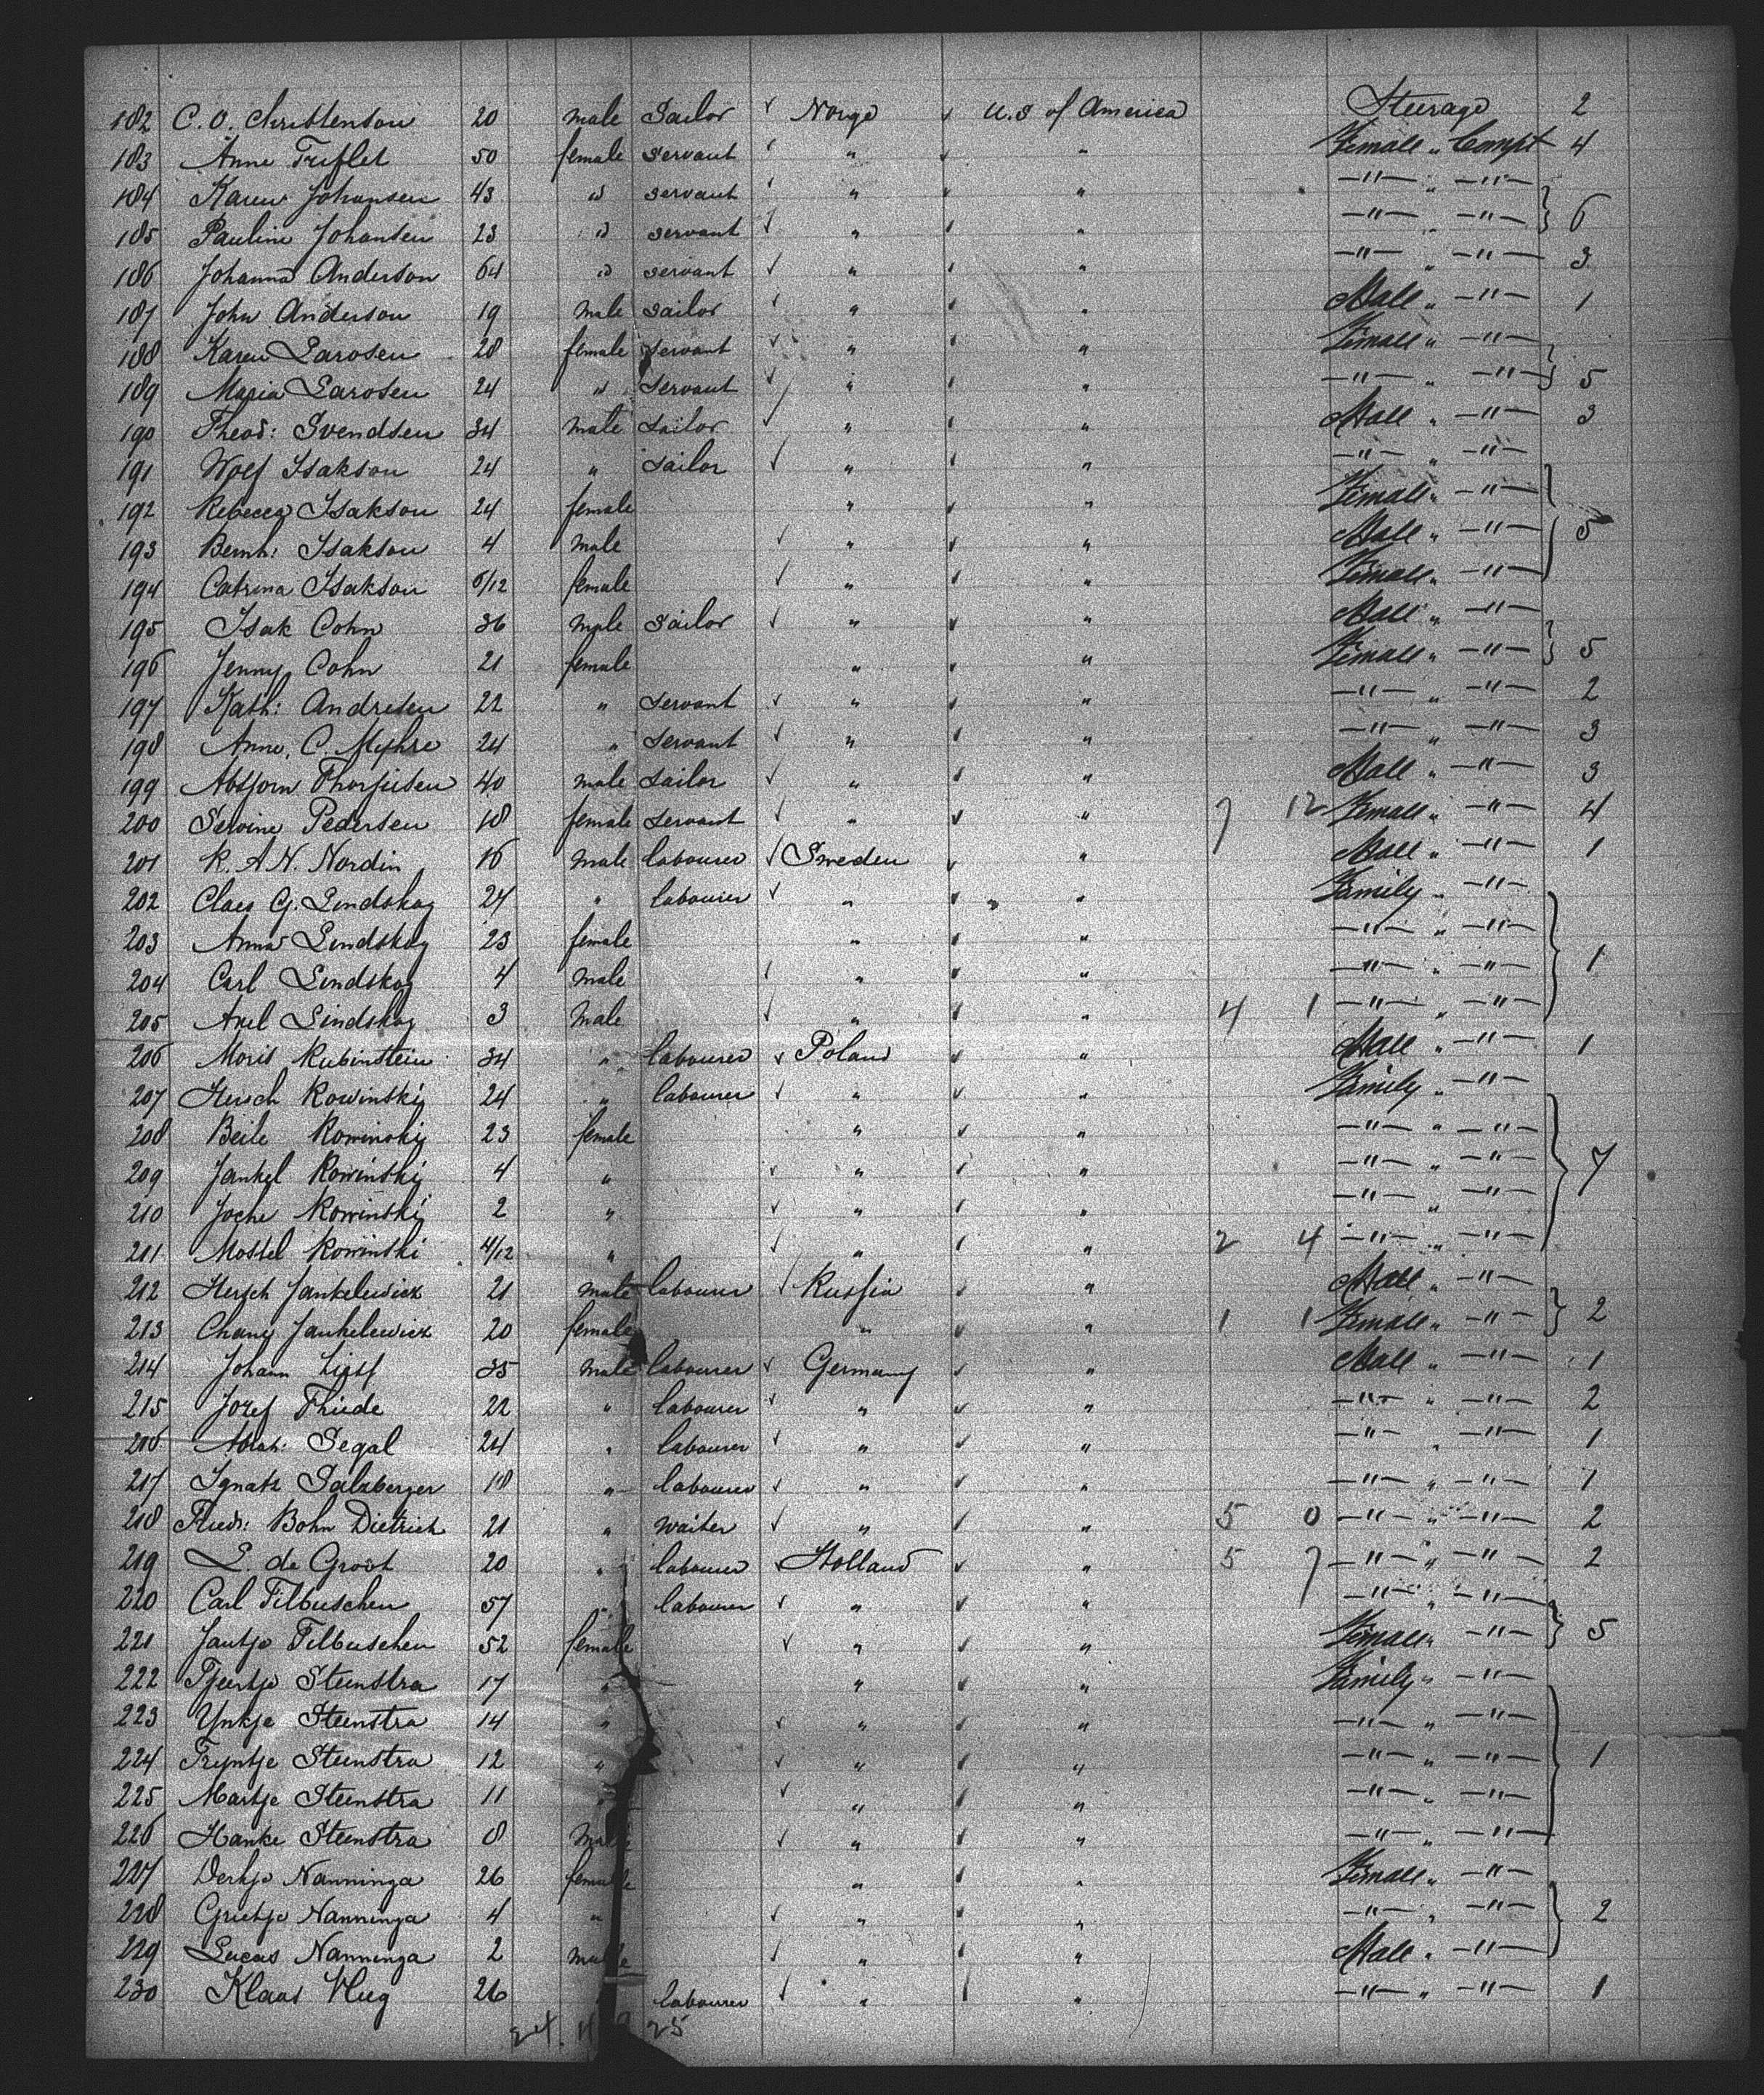 182 C. O. Christenson 20 male Sailor ✓ Norge ✓ U.S of America Steerage 2
183 Anne Triflet 50 female servant ✓ " ✓ " Female " Compt 4
184 Karen Johansen 43 id servant ✓ " ✓ " —"— " —"—
185 Pauline Johansen 23 id servant ✓ " ✓ " —"— " —"— } 6
186 Johanna Anderson 64 id servant ✓ " ✓ " —"— " —"— 3
187 John Anderson 19 male sailor ✓ " ✓ " Male " —"— 1
188 Karen Larosen 28 female servant ✓ " ✓ " Female " —"—
189 Maria Larosen 24 id servant ✓ " ✓ " —"— " —"— } 5
190 Theod: Svendsen 34 male sailor ✓ " ✓ " Male " —"— 3
191 Wolf Isakson 24 " sailor ✓ " ✓ " —"— " —"—
192 Rebecca Isakson 24 female " ✓ " Female " —"—
193 Bernh: Isakson 4 male ✓ " ✓ " Male " —"— } 5
194 Catrina Isakson 6/12 female ✓ " ✓ " Female " —"—
195 Isak Cohn 36 male sailor ✓ " ✓ " Male " —"—
196 Jenny Cohn 21 female " ✓ " Female " —"— } 5
197 Kath: Andresen 22 " servant ✓ " ✓ " —"— " —"— 2
198 Anne C. Myhre 24 " servant ✓ " ✓ " —"— " —"— 3
199 Absjorn 40 male sailor ✓ " ✓ " Male " —"— 3
200 Servine Pedersen 18 female servant ✓ " ✓ " 7 12 Female " —"— 4
201 K. A N. Nordin 16 male labourer ✓ Sweden ✓ " Male " —"— 1
202 Claes G. Lindskog 24 " labourer ✓ " ✓ " Family " —"—
203 Anna Lindskog 23 female " ✓ " —"— " —"—
204 Carl Lindskog 4 male ✓ " ✓ " —"— " —"— } 1
205 Axel Lindskog 3 male ✓ " ✓ " 4 1 —"— " —"—
206 Moris Rubinstein 34 " labourer ✓ Poland ✓ " Male " —"— 1
207 Hersch Rowinski 24 " labourer ✓ " ✓ " Family " —"—
208 Beile Rowinski 23 female " ✓ " —"— " —"—
209 Jankel Rowinski 4 " ✓ " ✓ " —"— " —"— } 7
210 Joche Rowinski 2 " ✓ " ✓ " —"— " —"—
211 Mostel Rowinski 4/12 " ✓ " ✓ " 2 4 —"— " —"—
212 Hersch Jankelewick 21 male labourer ✓ Russia " Male " —"—
213 Chane Jankelewick 20 female " ✓ " 1 1 Female " —"— } 2
214 Johann 35 male labourer ✓ Germany ✓ " Male " —"— 1
215 Josef Thiede 22 " labourer ✓ " ✓ " —"— " —"— 2
216 Abrah: Segal 24 " labourer ✓ " ✓ " —"— " —"— 1
217 Ignatz Salzberger 18 " labourer ✓ " ✓ " —"— " —"— 1
218 Friedr: Bohn Dietrich 21 " waiter ✓ " ✓ " 5 0 —"— " —"— 2
219 L. de Groot 20 " labourer ✓ Holland ✓ " 5 7 —"— " —"— 2
220 Carl Tilbuschen 57 " labourer ✓ " ✓ " —"— " —"—
221 Jantje Tilbuschen 52 female ✓ " ✓ " Female " —"— } 5
222 Tjeertje Steenstra 17 " " ✓ " Family " —"—
223 Ynkje Steenstra 14 " ✓ " ✓ " —"— " —"—
224 Tryntje Steenstra 12 " ✓ " ✓ " —"— " —"— } 1
225 Martje Steenstra 11 " ✓ " ✓ " —"— " —"—
226 Hanke Steenstra 8 male ✓ " ✓ " —"— " —"—
227 Derkje Nanninga 26 female " ✓ " Female " —"—
228 Grietje Nanninga 4 " ✓ " ✓ " —"— " —"— } 2
229 Lucas Nanninga 2 male ✓ " ✓ " Male " —"—
230 Klaas Vlieg 26 " labourer ✓ " ✓ " —"— " —"— 1
24. 25